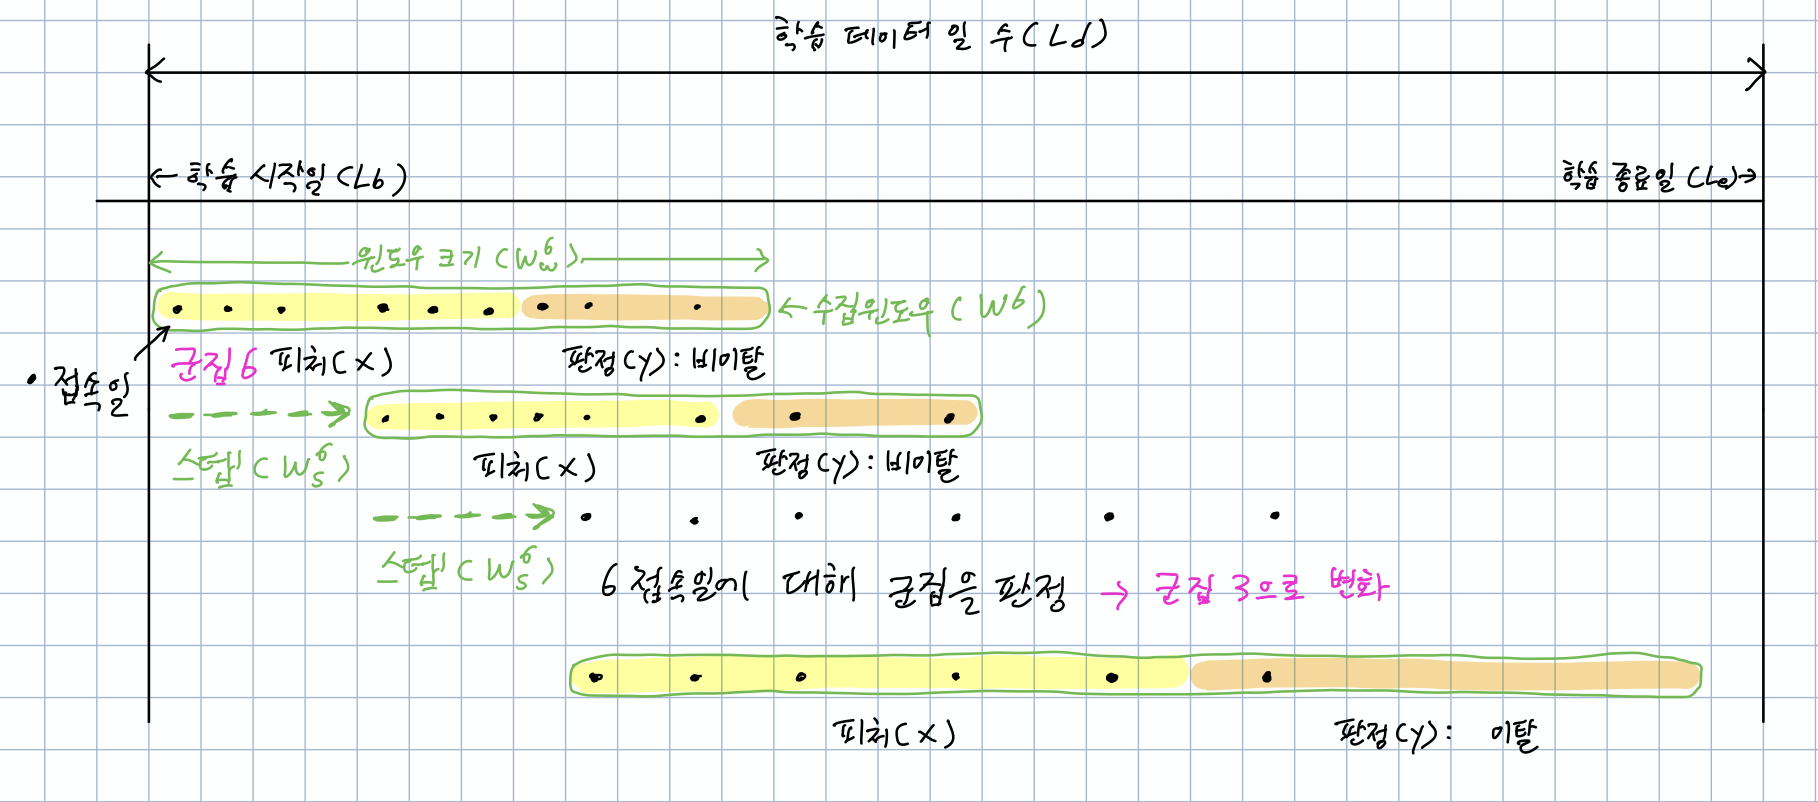 학습 데이터 일 수(Ld)
← 학습 시작일(Lb)
학습 종료일(Le)→
윈도우 크기(W⁶w)
← 수집윈도우(W⁶)
군집6 피처(X)
판정(y): 비이탈
• 접속일
스텝(W⁶s)
피처(X)
판정(y): 비이탈
스텝(W⁶s)
6 접속일에 대해 군집을 판정 → 군집 3으로 변화
피처(X)
판정(y): 이탈